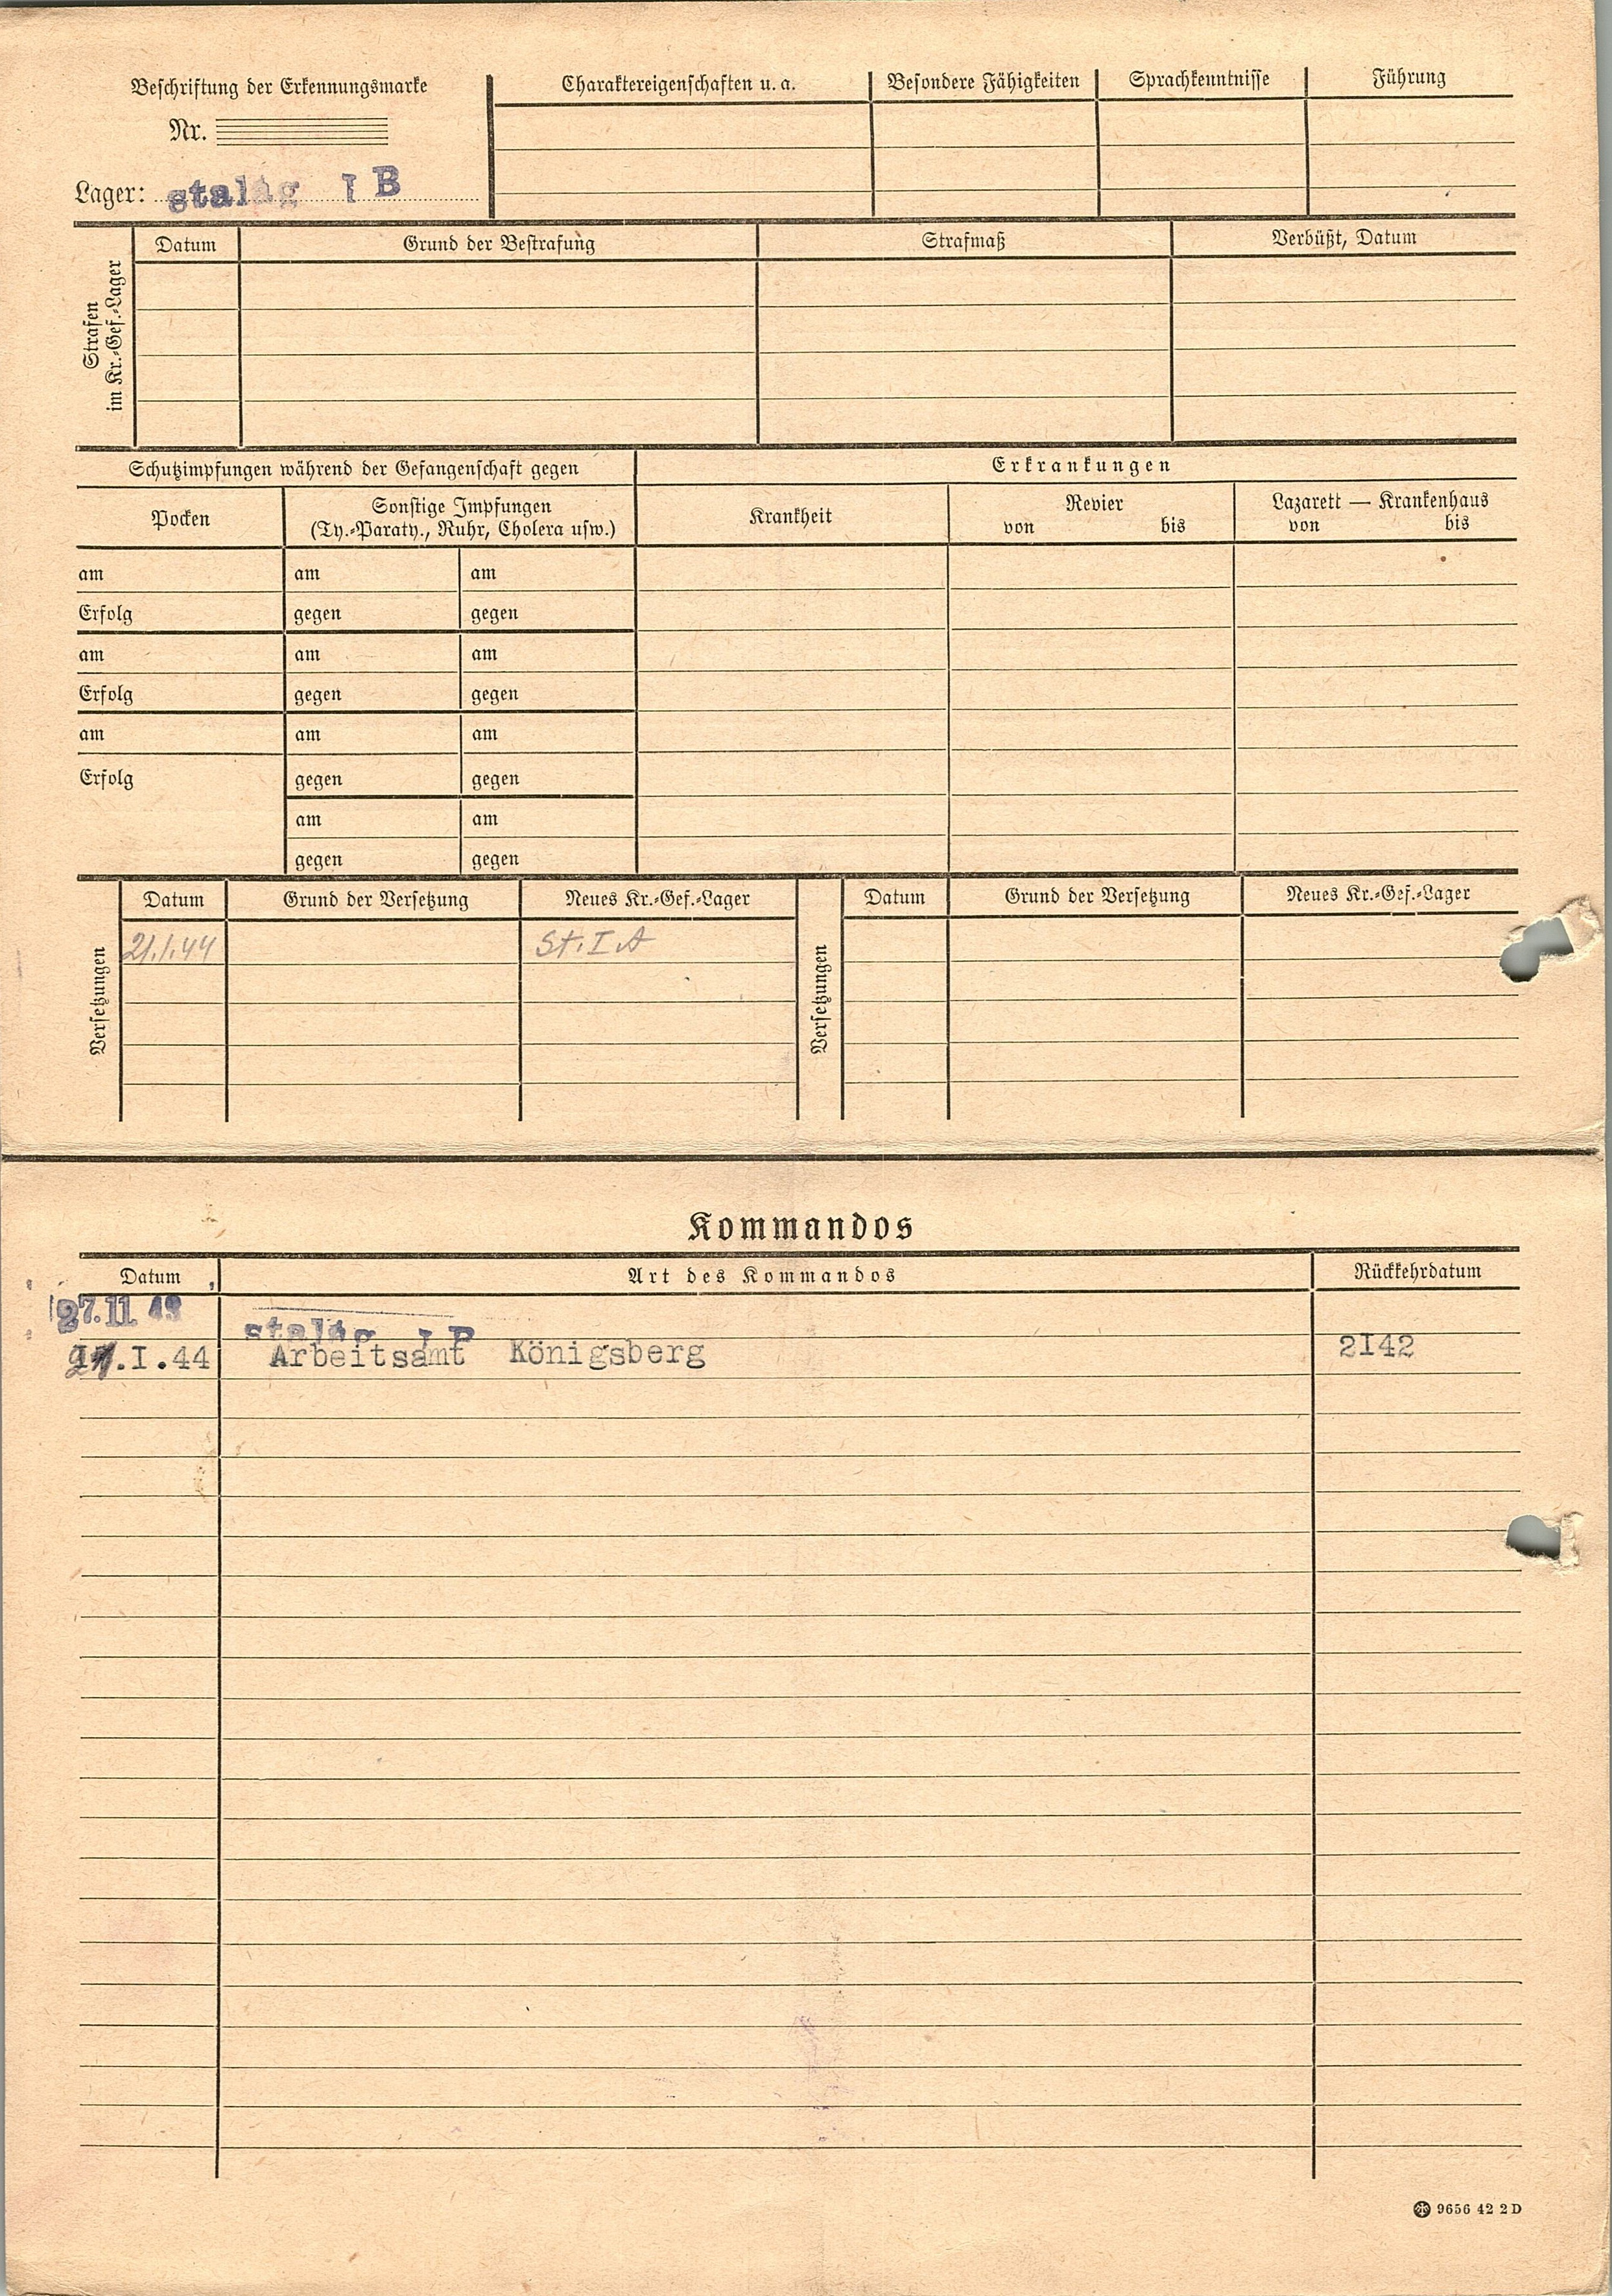 Beschriftung der Erkennungsmarke
Nr.
Lager: stalag I B
Charaktereigenschaften u. a. Besondere Fähigkeiten Sprachkenntnisse Führung
Strafen
im Kr.-Gef.-Lager
Datum Grund der Bestrafung Strafmaß Verbüßt, Datum
Schutzimpfungen während der Gefangenschaft gegen
Erkrankungen
Pocken
Sonstige Impfungen
(Ty.-Paraty., Ruhr, Cholera usw.)
Krankheit
Revier
von bis
Lazarett — Krankenhaus
von bis
am am am
Erfolg gegen gegen
am am am
Erfolg gegen gegen
am am am
Erfolg gegen gegen
am am
gegen gegen
Versetzungen
Datum Grund der Versetzung Neues Kr.-Gef.-Lager
21.1.44 St. I A
Versetzungen
Datum Grund der Versetzung Neues Kr.-Gef.-Lager
Kommandos
Datum Art des Kommandos Rückkehrdatum
27.11 43 stalag I B
.I.44 Arbeitsamt Königsberg 2I42
9656 42 2 D